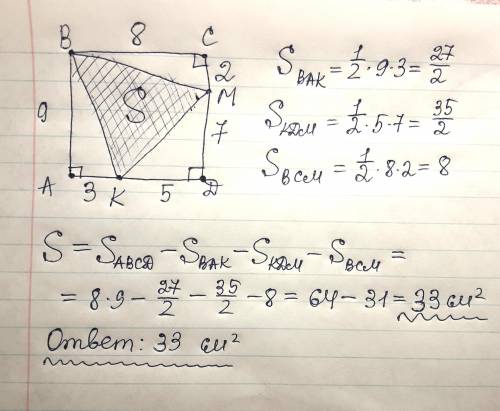 B 8 C
2
M
9 S 7
A 3 K 5 D
S_BAK = 1/2 · 9 · 3 = 27/2
S_KDM = 1/2 · 5 · 7 = 35/2
S_BCM = 1/2 · 8 · 2 = 8
S = S_ABCD − S_BAK − S_KDM − S_BCM =
= 8 · 9 − 27/2 − 35/2 − 8 = 64 − 31 = 33 см²
Ответ: 33 см²